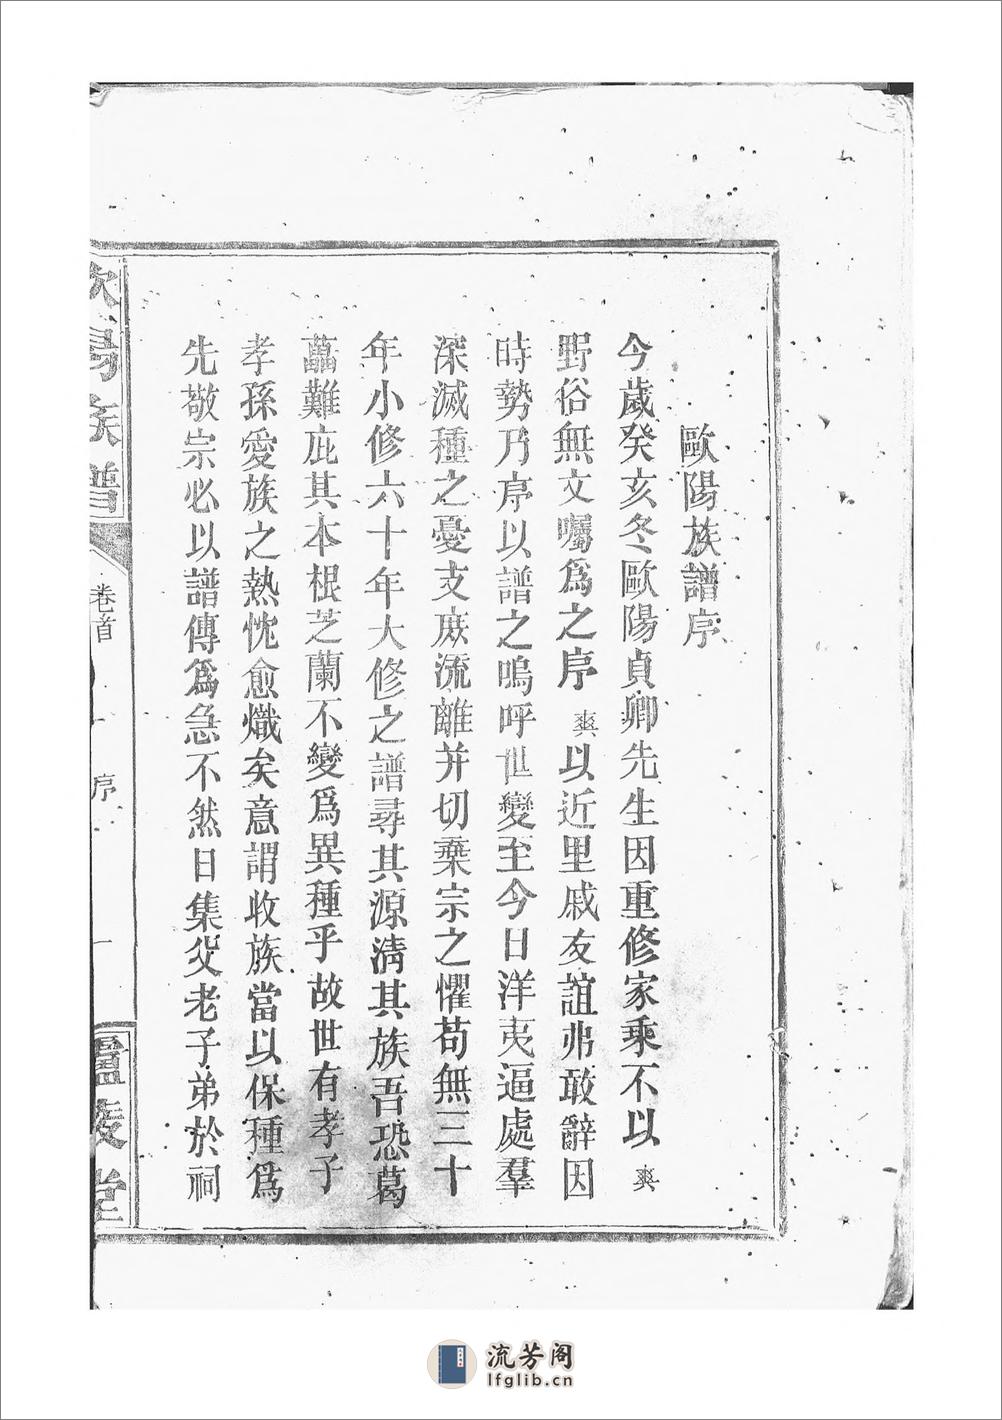 歐陽族譜序
今歲癸亥冬歐陽貞卿先生因重修家乘不以爽
野俗無文囑爲之序爽以近里戚友誼弗敢辭因
時勢乃序以譜之嗚呼世變至今日洋夷逼處羣
深滅種之憂支庶流離并切棄宗之懼苟無三十
年小修六十年大修之譜尋其源淸其族吾恐葛
藟難庇其本根芝蘭不變爲異種乎故世有孝子
孝孫愛族之熱忱愈熾矣意謂收族當以保種爲
先敬宗必以譜傳爲急不然日集父老子弟於祠
歐陽族譜
卷首
序
一
廬陵堂
流芳阁
lfglib.cn